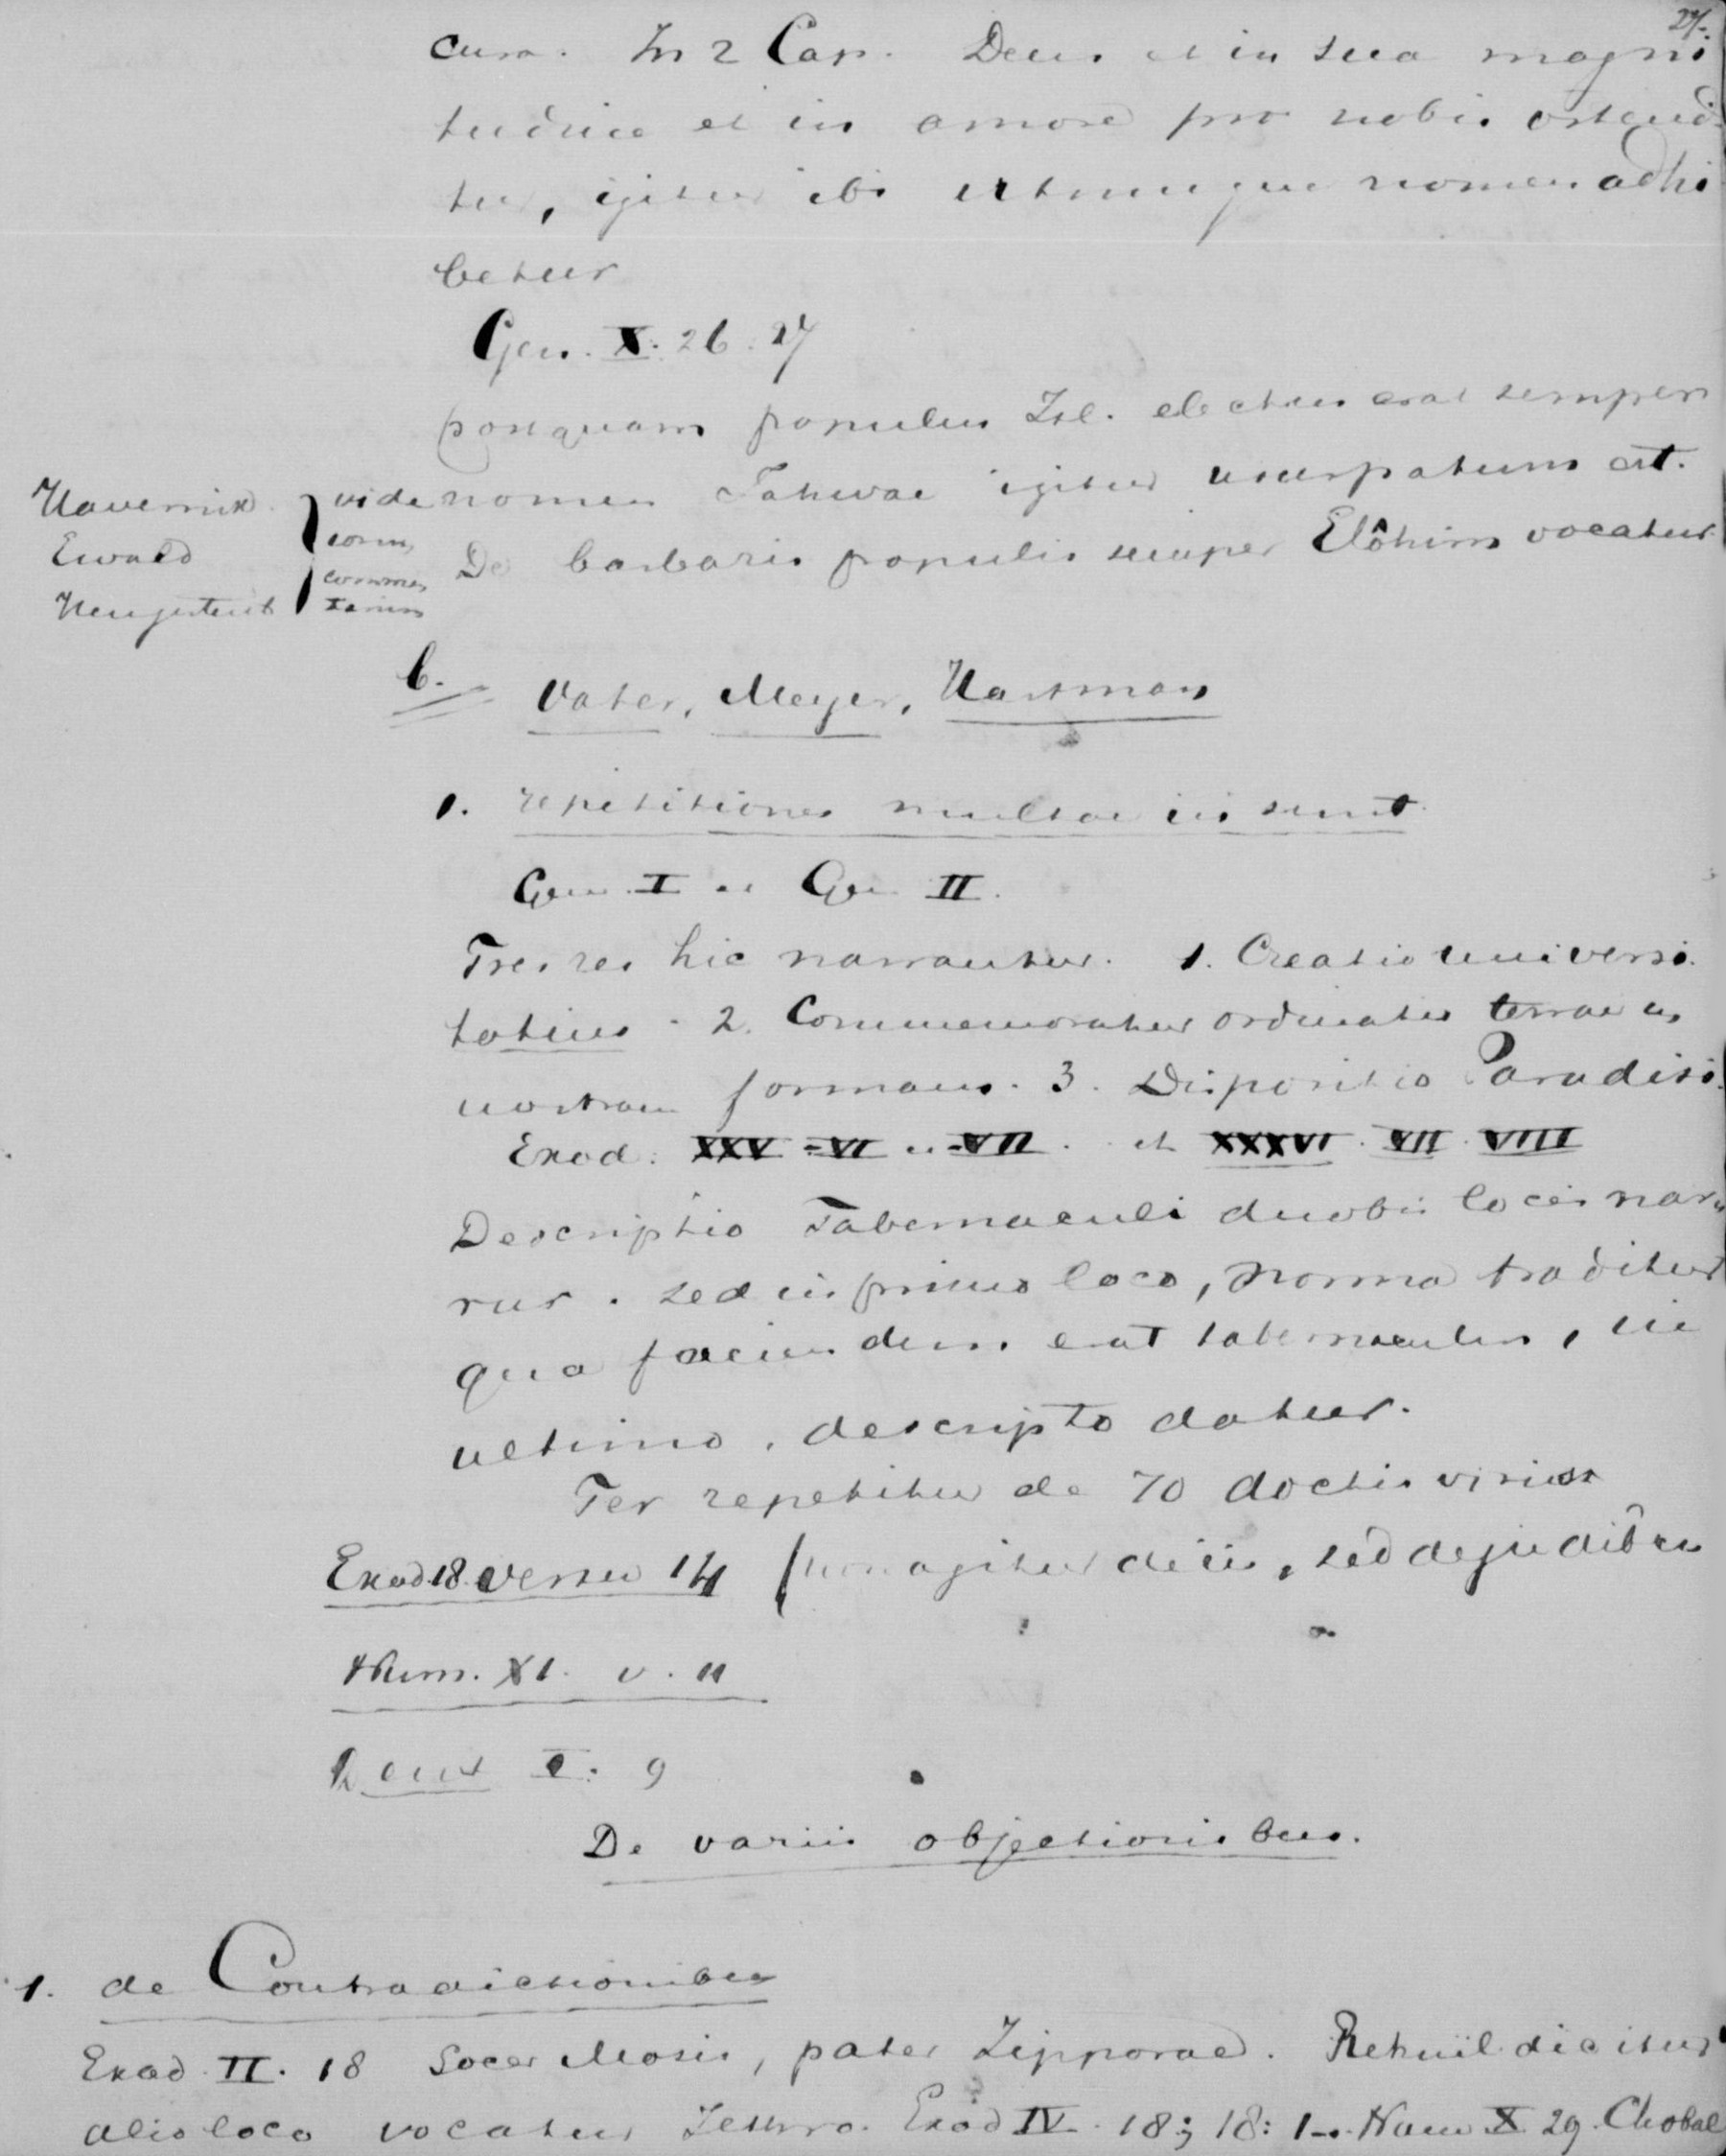 27.
cura. In 2 Cap. Deus et in sua magni
tudine et in amore pro nobis ostendi
tur, igitur ibi utrumque nomen adhi
betur
Gen. X. 26. 27
posquam populus Isl. electus erat semper
nomen Jahwae igitur usurpatum est.
De barbaris populis semper Elôhim vocatur
Havernik
Ewald
Hengstenb
vide
eorum
commen
tarium
b. Vater, Meyer, Hartman
1. repititiones multae in sunt
Gen I et Gen II.
Tres res hic narrantur. 1. Creatio universi
totius - 2. Commemoratur ordinatio terrae in
nostram formam. 3. Dispositio Paradisi.
Exod. XXV - VI et - VII. et XXXVI. VII. VIII
Descriptio Tabernaculi duobis locis narra
tur. sed in primo loco, norma traditur
qua faciendum erat tabernaculum, in
ultimo, descripto datur.
Ter repetitur de 70 doctis viris
Exod 18 versu 14 (non agitur de iis, sed de judibus
Num. XI. v. 11
Deut I: 9
De variis objectionibus.
1. de Contradictionibus
Exod II. 18 Socer Mosis, pater Zipporae. Rehuil dicitur
alio loco vocatur Jethro. Exod IV. 18; 18: 1 -. Num X 29. Chobal